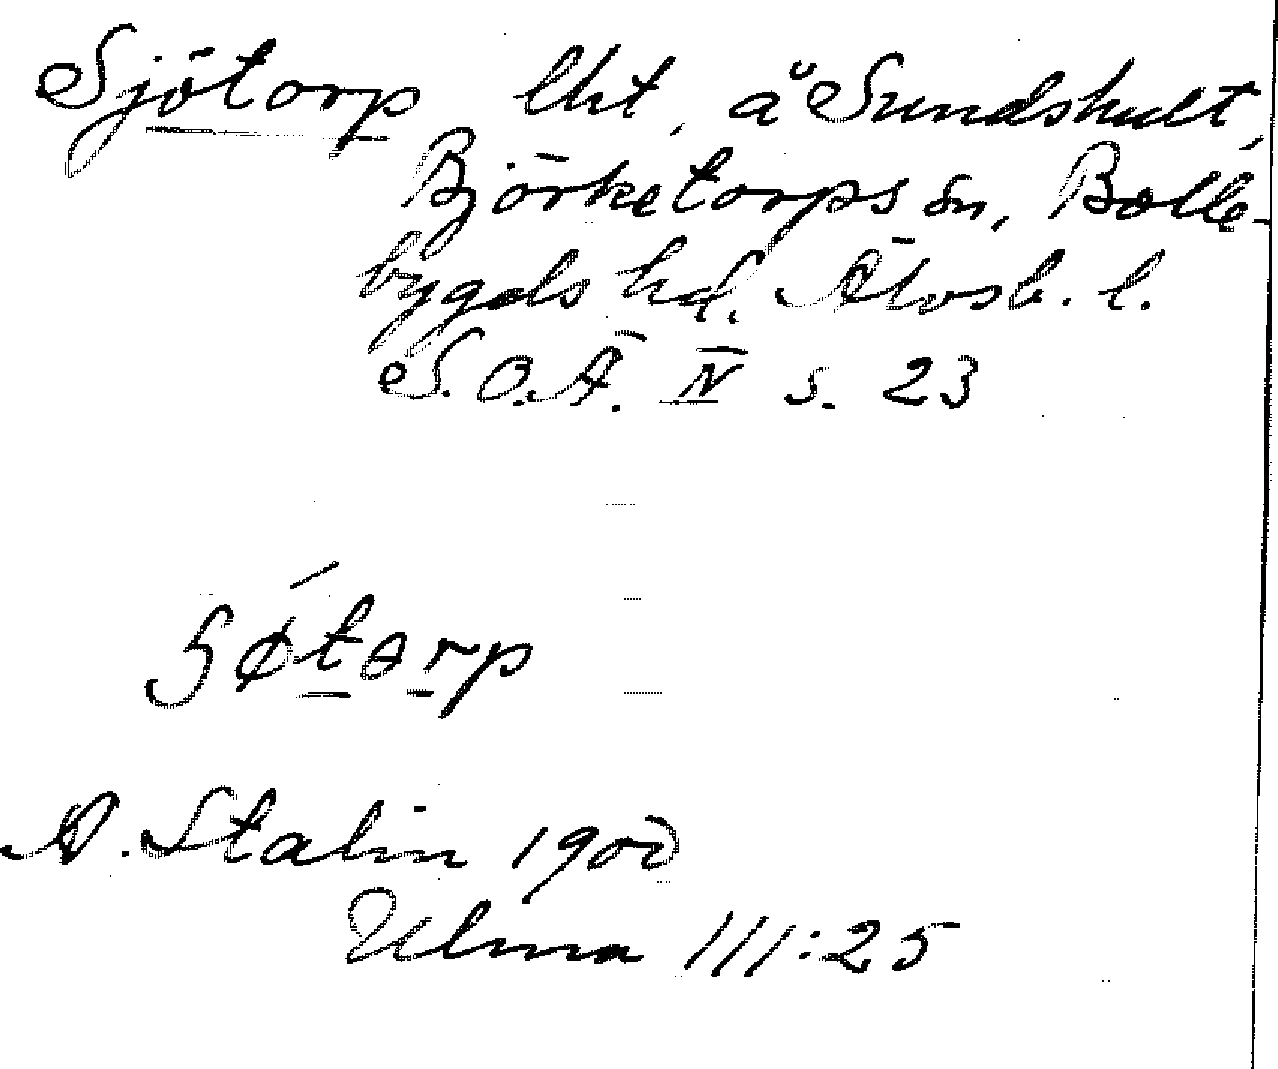 Sjötorp lht, å Sundshult,
Björketorps sn, Bolle-
bygds hd. Älvsb. l.
S.O.Ä. IV s. 23
A. Stalin 1900
Ulma 111:25